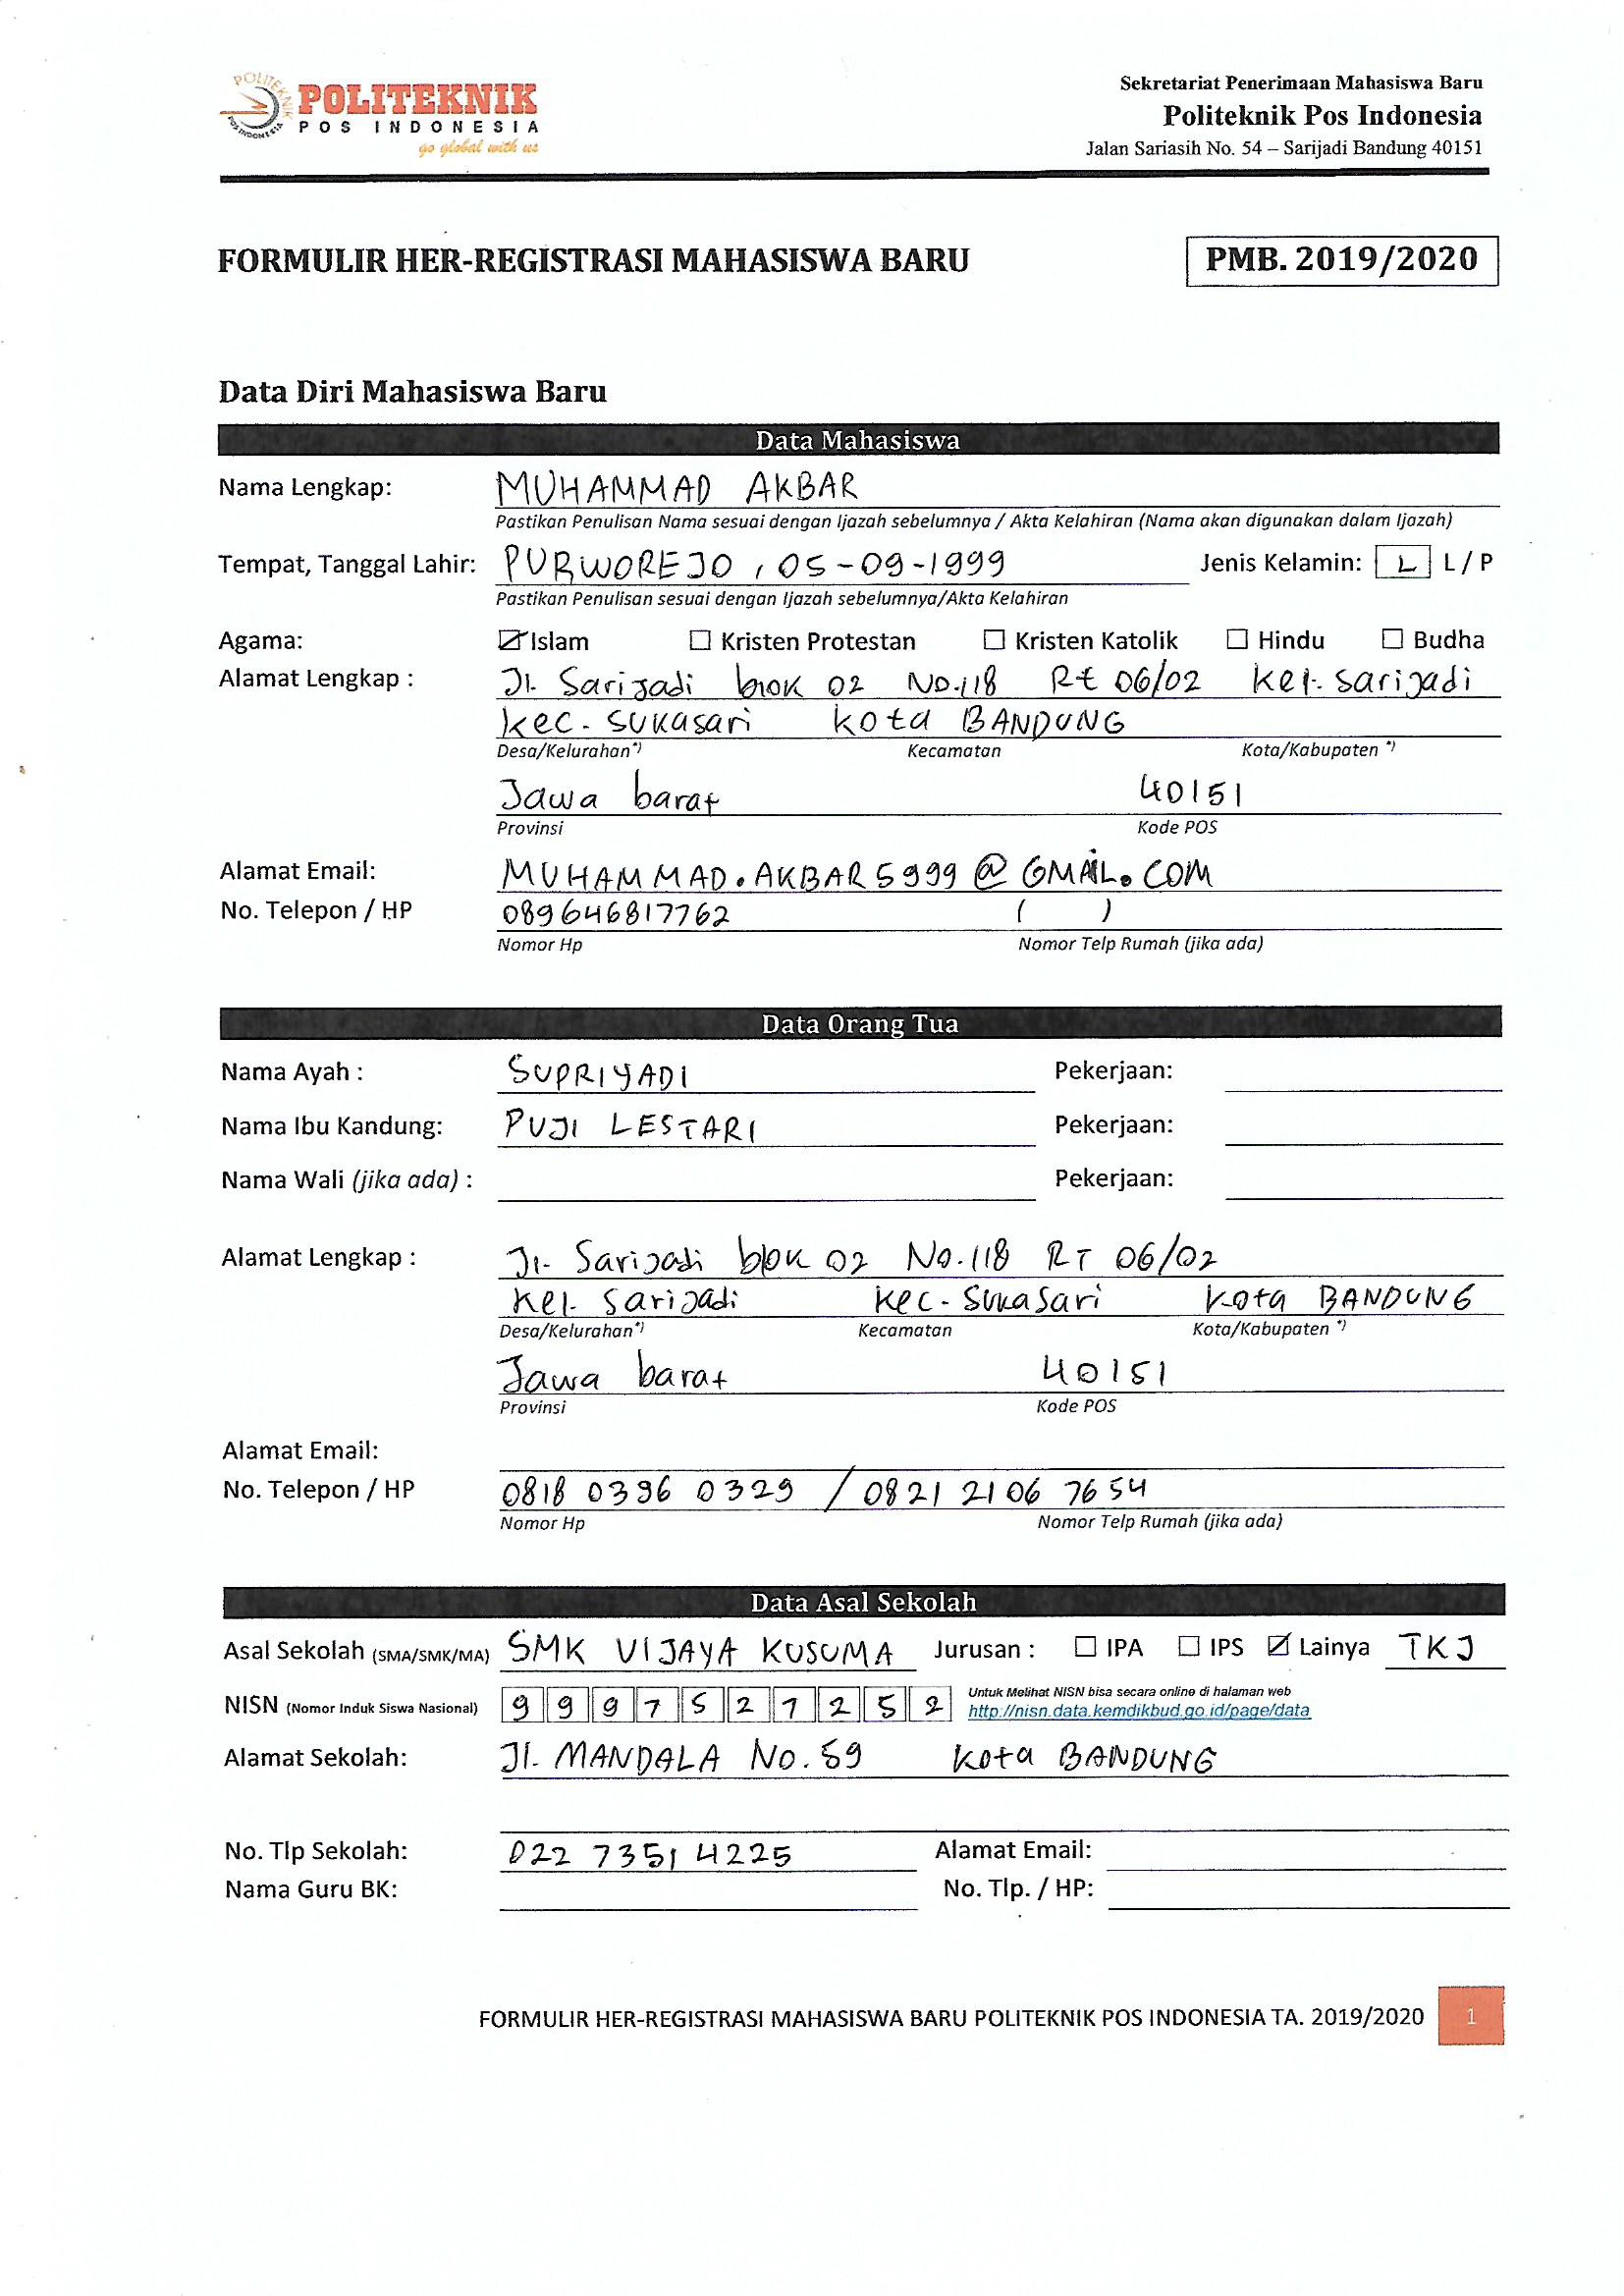 POLITEKNIK
POS INDONESIA
go global with us
Sekretariat Penerimaan Mahasiswa Baru
Politeknik Pos Indonesia
Jalan Sariasih No. 54 – Sarijadi Bandung 40151
FORMULIR HER-REGISTRASI MAHASISWA BARU PMB. 2019/2020
Data Diri Mahasiswa Baru
Data Mahasiswa
Nama Lengkap: MUHAMMAD AKBAR
Pastikan Penulisan Nama sesuai dengan Ijazah sebelumnya / Akta Kelahiran (Nama akan digunakan dalam Ijazah)
Tempat, Tanggal Lahir: PURWOREJO , 05-09-1999 Jenis Kelamin: L L / P
Pastikan Penulisan sesuai dengan Ijazah sebelumnya/Akta Kelahiran
Agama: Islam Kristen Protestan Kristen Katolik Hindu Budha
Alamat Lengkap : Jl. Sarijadi blok 02 No.118 Rt 06/02 kel. sarijadi
kec. sukasari kota BANDUNG
Desa/Kelurahan*) Kecamatan Kota/Kabupaten *)
Jawa barat 40151
Provinsi Kode POS
Alamat Email: MUHAMMAD.AKBAR5999@GMAIL.COM
No. Telepon / HP 089646817762 ( )
Nomor Hp Nomor Telp Rumah (jika ada)
Data Orang Tua
Nama Ayah : SUPRIYADI Pekerjaan:
Nama Ibu Kandung: PUJI LESTARI Pekerjaan:
Nama Wali (jika ada) : Pekerjaan:
Alamat Lengkap : Jl. Sarijadi blok 02 No.118 RT 06/02
kel. sarijadi kec. sukasari kota BANDUNG
Desa/Kelurahan*) Kecamatan Kota/Kabupaten *)
Jawa barat 40151
Provinsi Kode POS
Alamat Email:
No. Telepon / HP 0818 0396 0329 / 0821 2106 7654
Nomor Hp Nomor Telp Rumah (jika ada)
Data Asal Sekolah
Asal Sekolah (SMA/SMK/MA) SMK VIJAYA KUSUMA Jurusan : IPA IPS Lainya TKJ
NISN (Nomor Induk Siswa Nasional) 9 9 9 7 5 2 7 2 5 2 Untuk Melihat NISN bisa secara online di halaman web
http://nisn.data.kemdikbud.go.id/page/data
Alamat Sekolah: Jl. MANDALA No. 59 kota BANDUNG
No. Tlp Sekolah: 022 7351 4225 Alamat Email:
Nama Guru BK: No. Tlp. / HP:
FORMULIR HER-REGISTRASI MAHASISWA BARU POLITEKNIK POS INDONESIA TA. 2019/2020 1